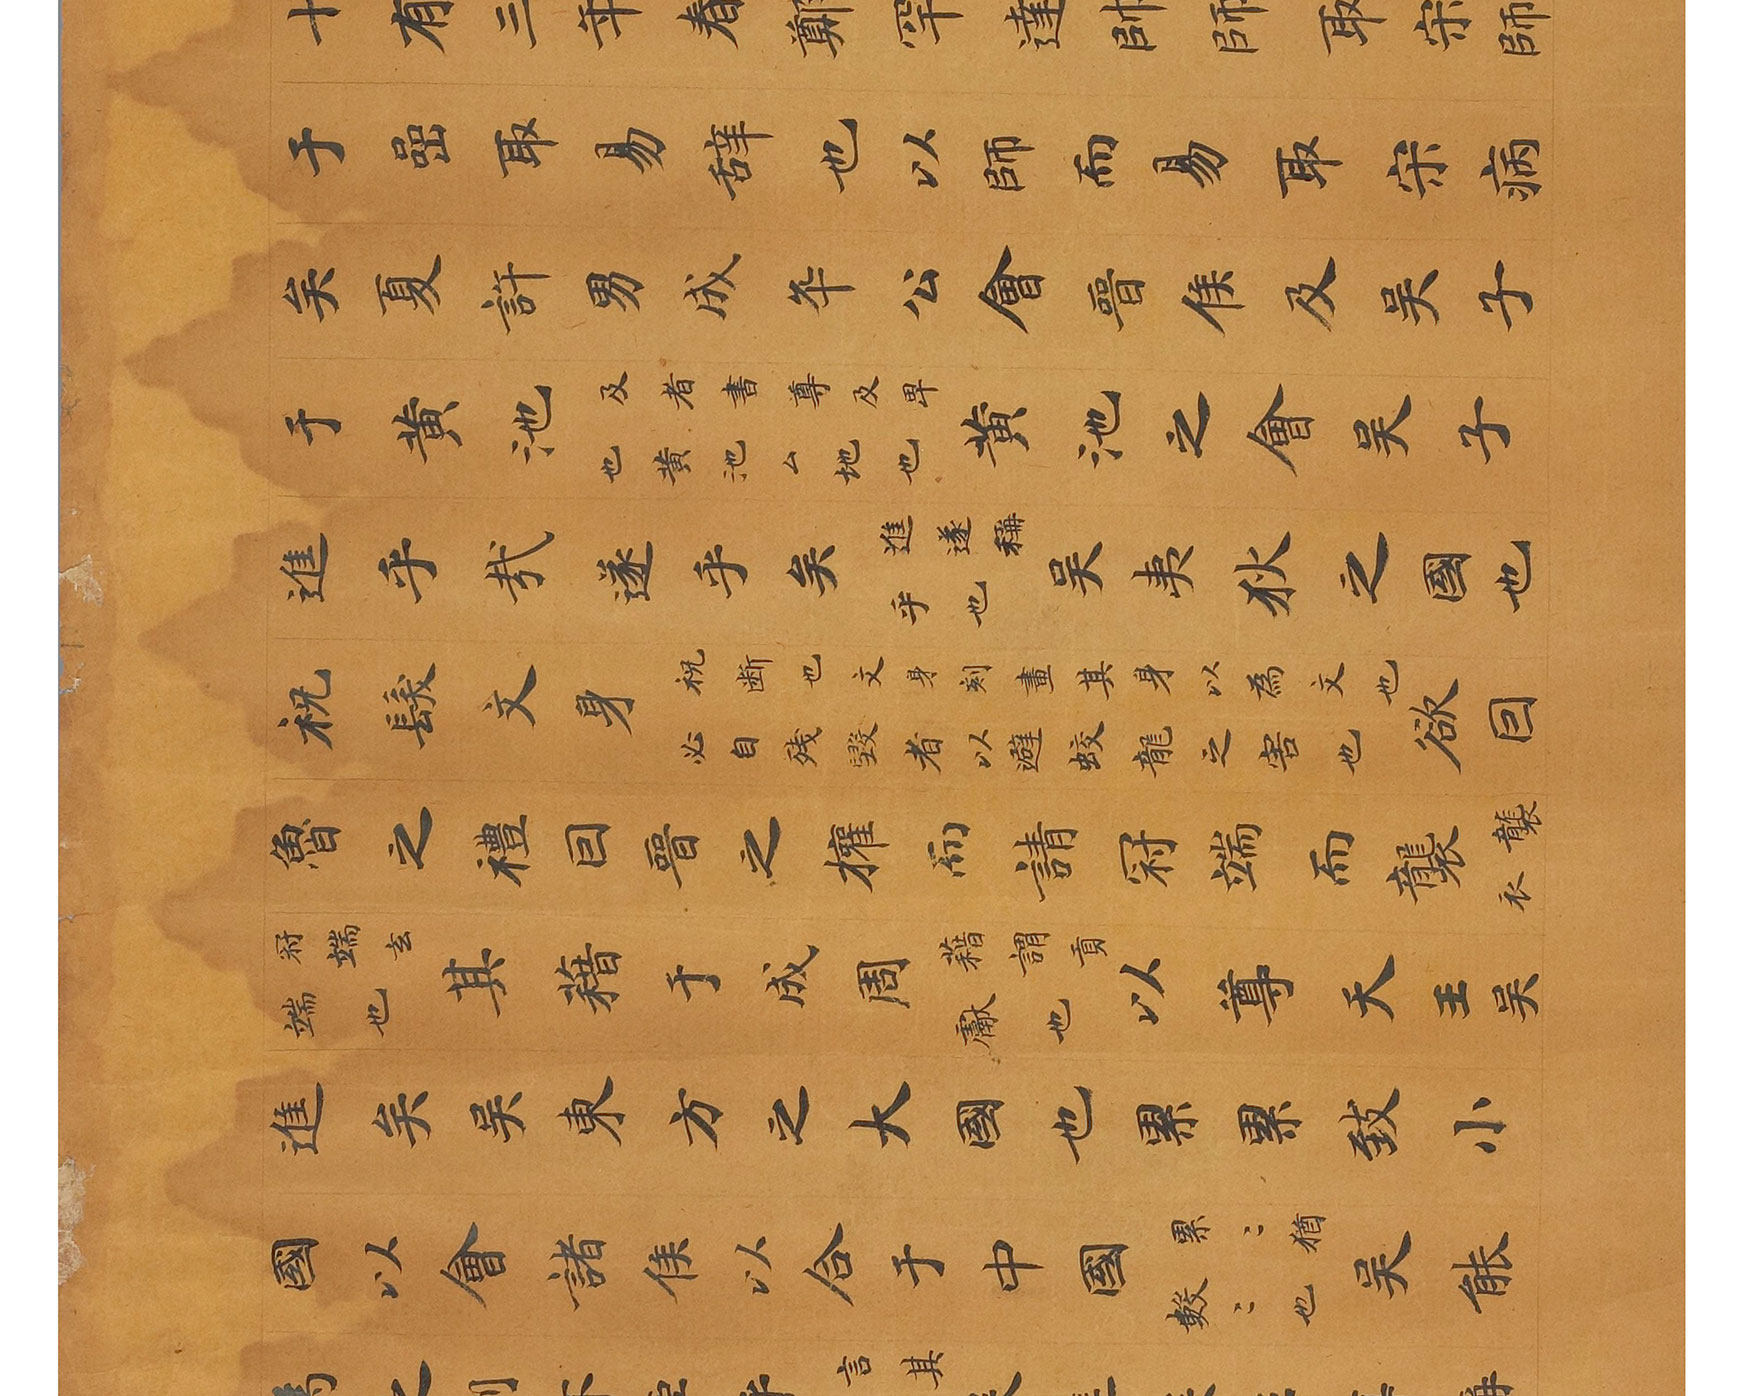 十有三年春鄭罕達帥師取宋師
于嵒取易辭也以師而易取宋病
矣夏許男成卒公會晉侯及吳子
于黃池及者書尊及卑也黃池厶地也黃池之會吳子
進乎哉遂乎矣進遂稱乎也吳夷狄之國也
祝髮文身祝斷也文身刻畫其身以為文也必自残毀者以避蛟龍之害也欲因
魯之禮因晉之權而請冠端而襲襲衣
冠端玄端也其藉于成周藉謂貢獻也以尊天王吳
進矣吳東方之大國也累累致小
國以會諸侯以合于中國累〻猶數〻也吳能
言其